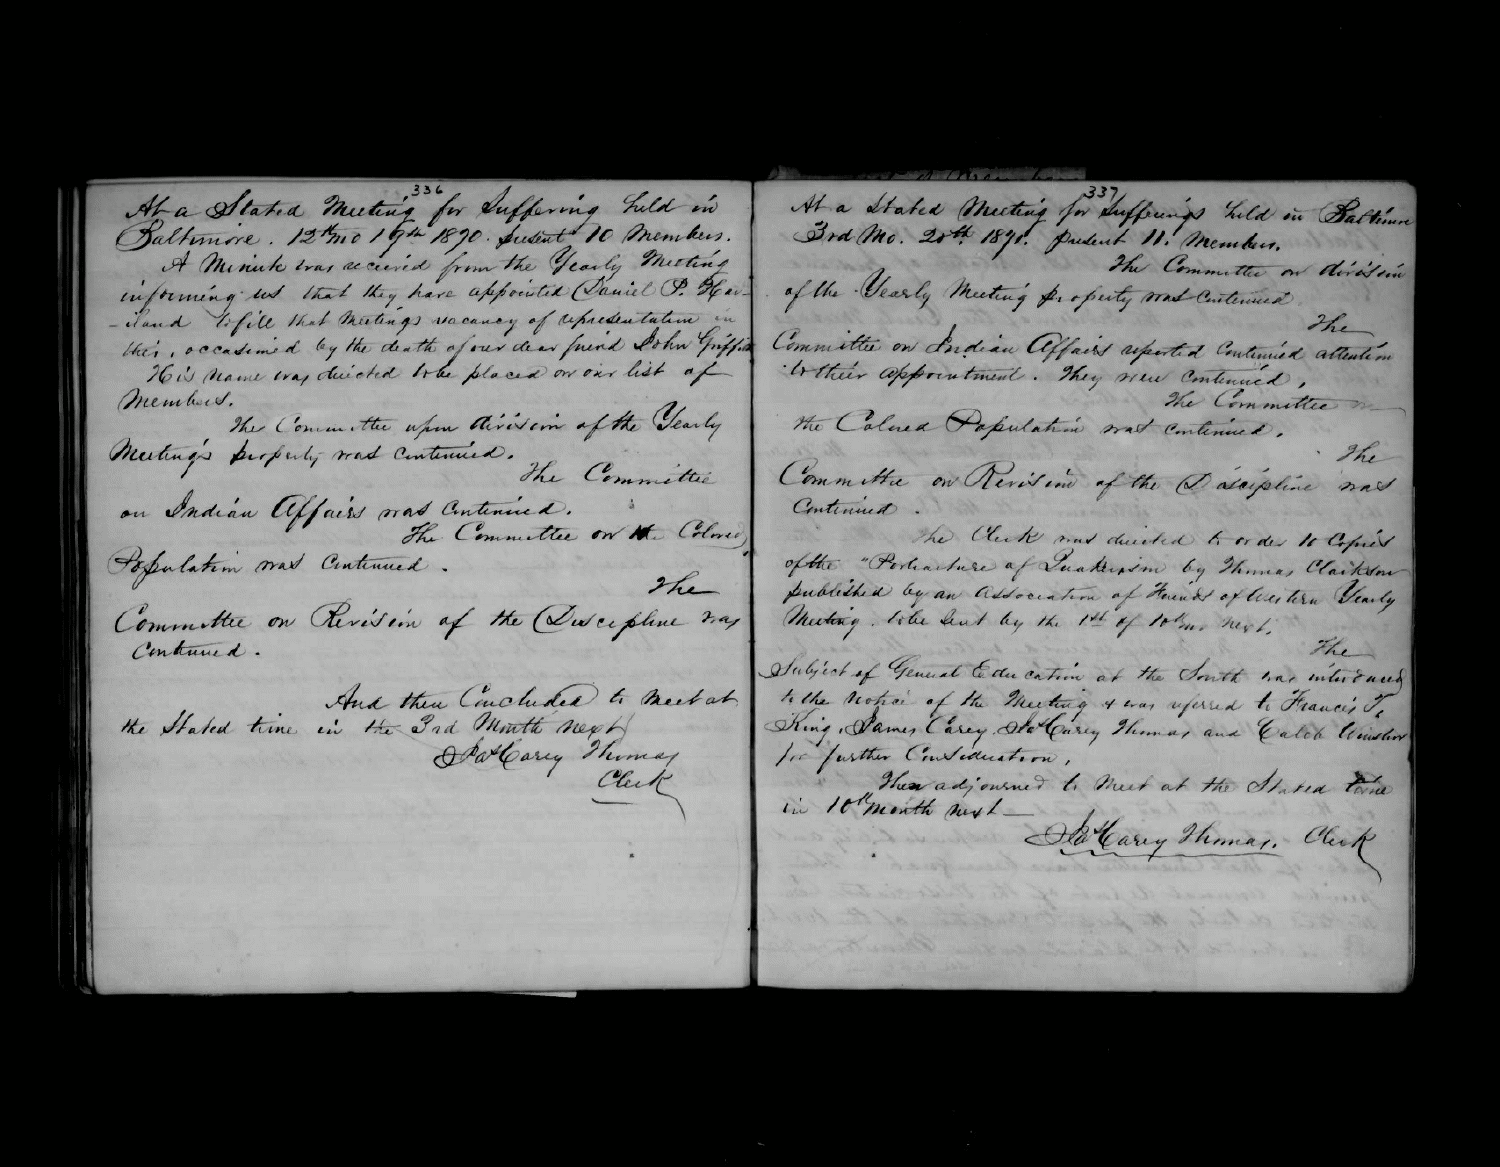 336
At a Stated Meeting for Suffering held in
Baltimore. 12th mo 19th 1890. present 10 Members.
A Minute was recieved from the Yearly Meeting
informing us that they have appointed Daniel P. Hav-
-iland to fill that Meetings vacancy of representation in
this, occasioned by the death of our dear friend John Griffith
His name was directed to be placed on our list of
Members.
The Committee upon division of the Yearly
Meeting's property was continued.
The Committee
on Indian Affairs was continued.
The Committee on the Colored
Population was continued.
The
Committee on Revision of the Discipline was
continued.
And then Concluded to meet at
the Stated time in the 3rd Month next
Jas Carey Thomas
Clerk
337
At a Stated Meeting for Sufferings held in Baltimore
3rd Mo. 20th 1890. present 11. Members.
The Committee on division
of the Yearly Meeting property was continued
The
Committee on Indian Affairs reported continued attention
to their appointment. They were continued.
The Committee on
the Colored Population was continued.
The
Committee on Revision of the Discipline was
continued.
The Clerk was directed to order 10 Copies
of the "Portraiture of Quakerism by Thomas Clarkson
published by an Association of Friends of Western Yearly
Meeting. to be sent by the 1st of 10th mo next.
The
Subject of General Education at the South was introduced
to the notice of the Meeting & was referred to Francis T.
King, James Carey, Jas Carey Thomas and Caleb Winslow
for further Consideration.
Then adjourned to meet at the Stated time
in 10th month next—
Jas Carey Thomas. Clerk